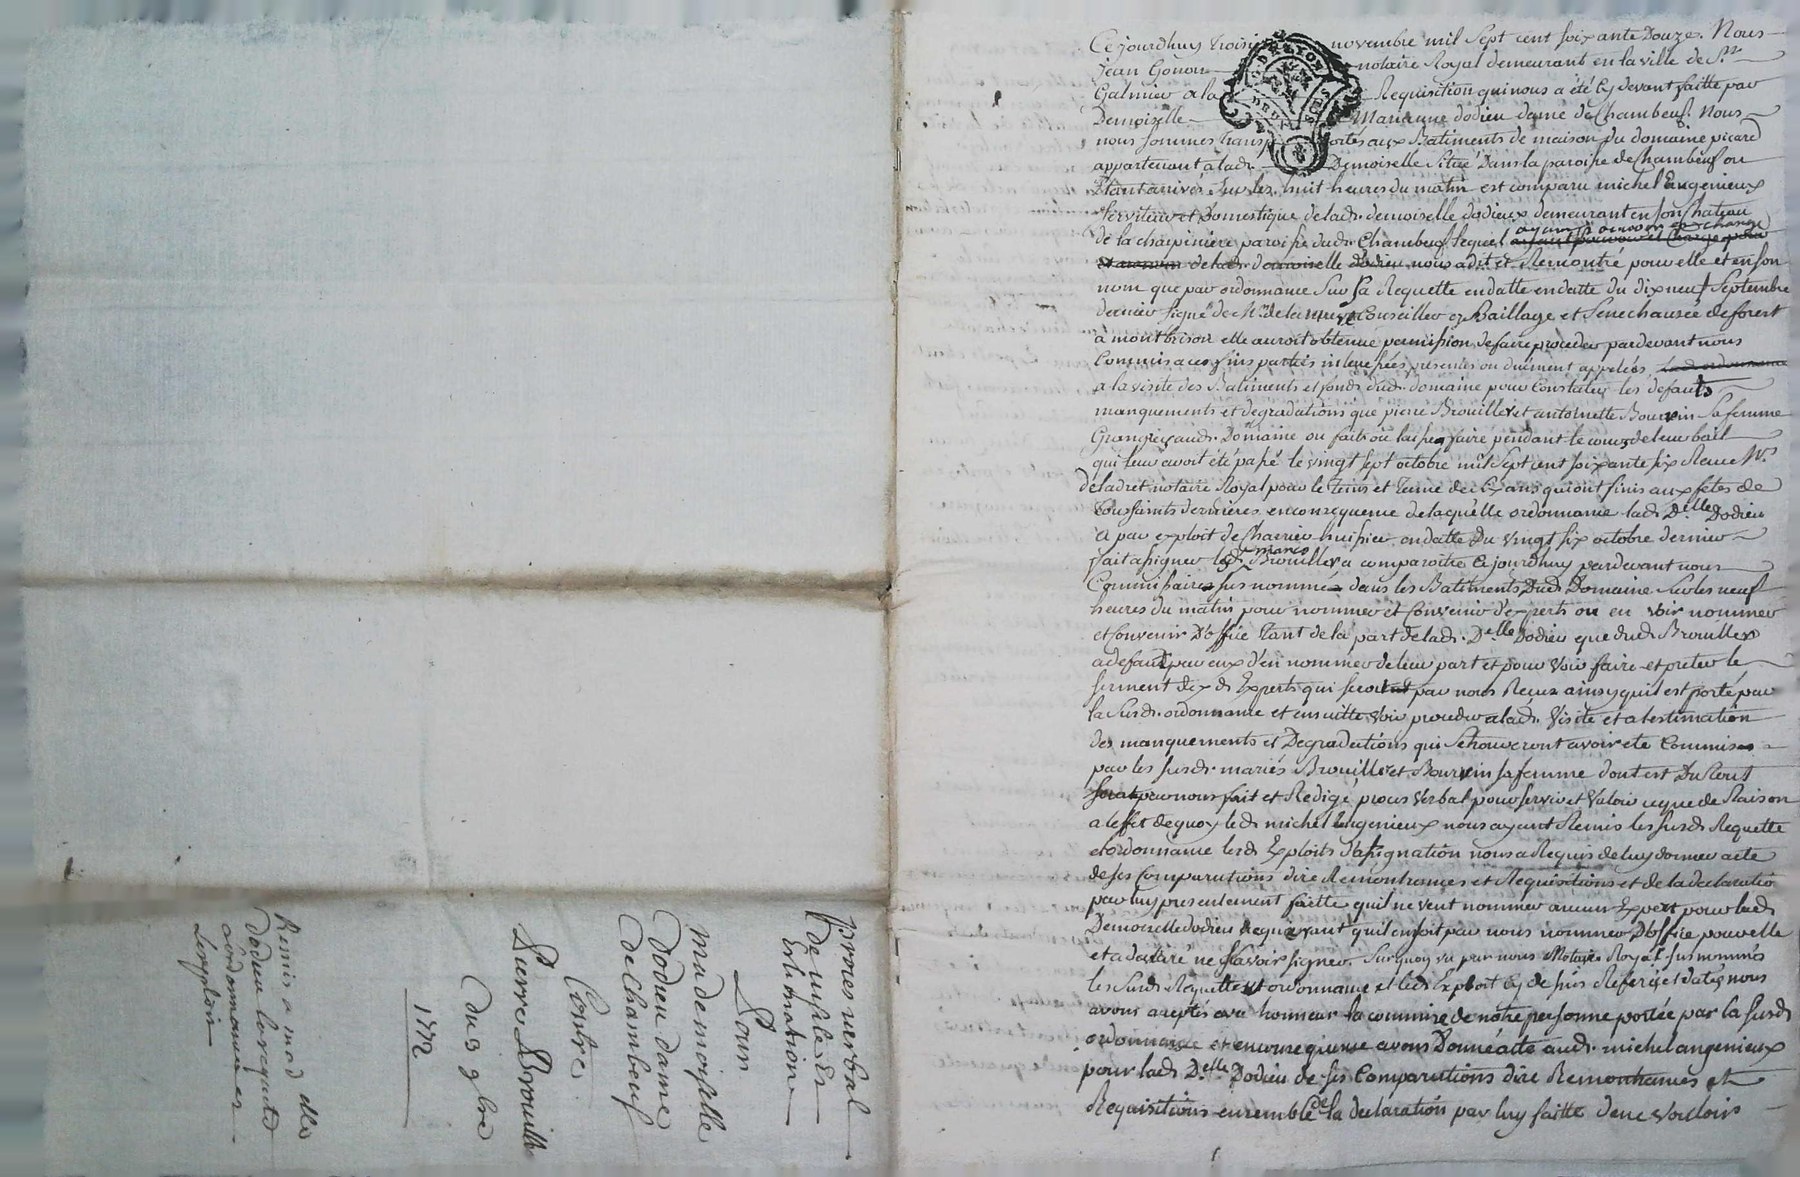 procès verbal
de visite Et
Estimation
Pour
mademoiselle
Dodieu dame
de Chambeuf
Contre
Pierre Brouillet
du 3 9bre
1772
Remis a mad dlle
dodieu la requete
ordonnance et
L'exploit
Ce jourdhuy troisie novembre mil sept cent soixante Douze. Nous
jean Gonon notaire Royal demeurant en la ville de St
Galmier a la Requisition qui nous a été Cy devant faitte par
Demoiselle Marianne dodieu dame de Chambeuf. Nous
nous sommes transportés aux Batiments de maison du domaine picard
appartenant a lade. Demoiselle Situé Dans la paroisse de Chambeuf ou
Etant arrivés Sur les huit heures du matin est comparu michel Engenieux
Serviteur et Domestique de lade. demoiselle dodieux demeurant en son Chateau
de la chapiniere paroisse dudt. Chambeuf lequel ayant pouvoir et charge
de lade. demoiselle dodieu nous a dit et Remontré pour elle et en son
nom que par ordonnance Sur Sa Requette en datte en datte du dix neuf Septembre
dernier signé de Mr. Conseiller Baillage et Senechaussée de forest
à montbrison elle auroit obtenue permission de faire proceder pardevant nous
Commis a ces fins parties interessées presentes ou duement appelées
a la visite des Batiments et fonds dudt. domaine pour Constater les defauts
manquements et degradations que pierre Brouillet et antoinette Bourrin Sa femme
Grangiers audt. Domaine ou faits ou laissé faire pendant le cours de leur bail
qui leur avoit été passé le vingt sept octobre mil Sept cent soixante six Reçu Me.
notaire Royal pour le tems et terme de six ans qui ont finis aux fetes de
Toussaints dernieres en consequence de laquelle ordonnance lade Delle Dodieu
a par exploit de Charrier huissier en datte du vingt six octobre dernier
fait assigner lesd. mariés Brouillet a comparoitre Cejourdhuy pardevant nous
Commissaires sus nommés dans les Batiments Dudt Domaine Sur les neuf
heures du matin pour nommer et Convenir d'experts ou en voir nommer
et Convenir D'office tant de la part de lade. Delle Dodieu que dudt Brouillet
a defaut par eux d'en nommer de leur part et pour voir faire et preter le
serment dix ds Experts qui seront par nous Reçus ainsy quil est porté par
la Susde. ordonnance et en suitte voir proceder a lade. Visite et a lestimation
des manquements et Degradations qui Se trouveront avoir ete Commises
par les susds. mariés Brouillet et Bourrin sa femme dont est Du tout
par nous fait et Redigé procès Verbal pour servir et Valoir ce que de Raison
a leffet de quoy led. michel Engenieux nous ayant Remis les susds Requette
et ordonnance lesd. Exploits d'assignation nous a Requis de luy donner acte
de ses Comparutions dire Remontrances et Requisitions et de la declaratio
par luy presentement faitte quil ne veut nommer aucun Expert pour lade
Demoiselle dodieu Requerant qu'il en soit par nous nommer D'office pour elle
et a declaré ne Sçavoir signer. Surquoy vu par nous Notaire Royal Susnommés
les Susds. Requette et ordonnance et leds Exploit Cy dessus Referés et datés nous
avons acceptés avec honneur la commise de notre personne portée par la Susde
ordonnance et en consequence avons Donné acte audt. michel angenieux
pour lade Delle Dodieu de ses Comparutions dire Remontrances et
Requisitions ensemble de la declaration par luy faitte de ne Vouloir